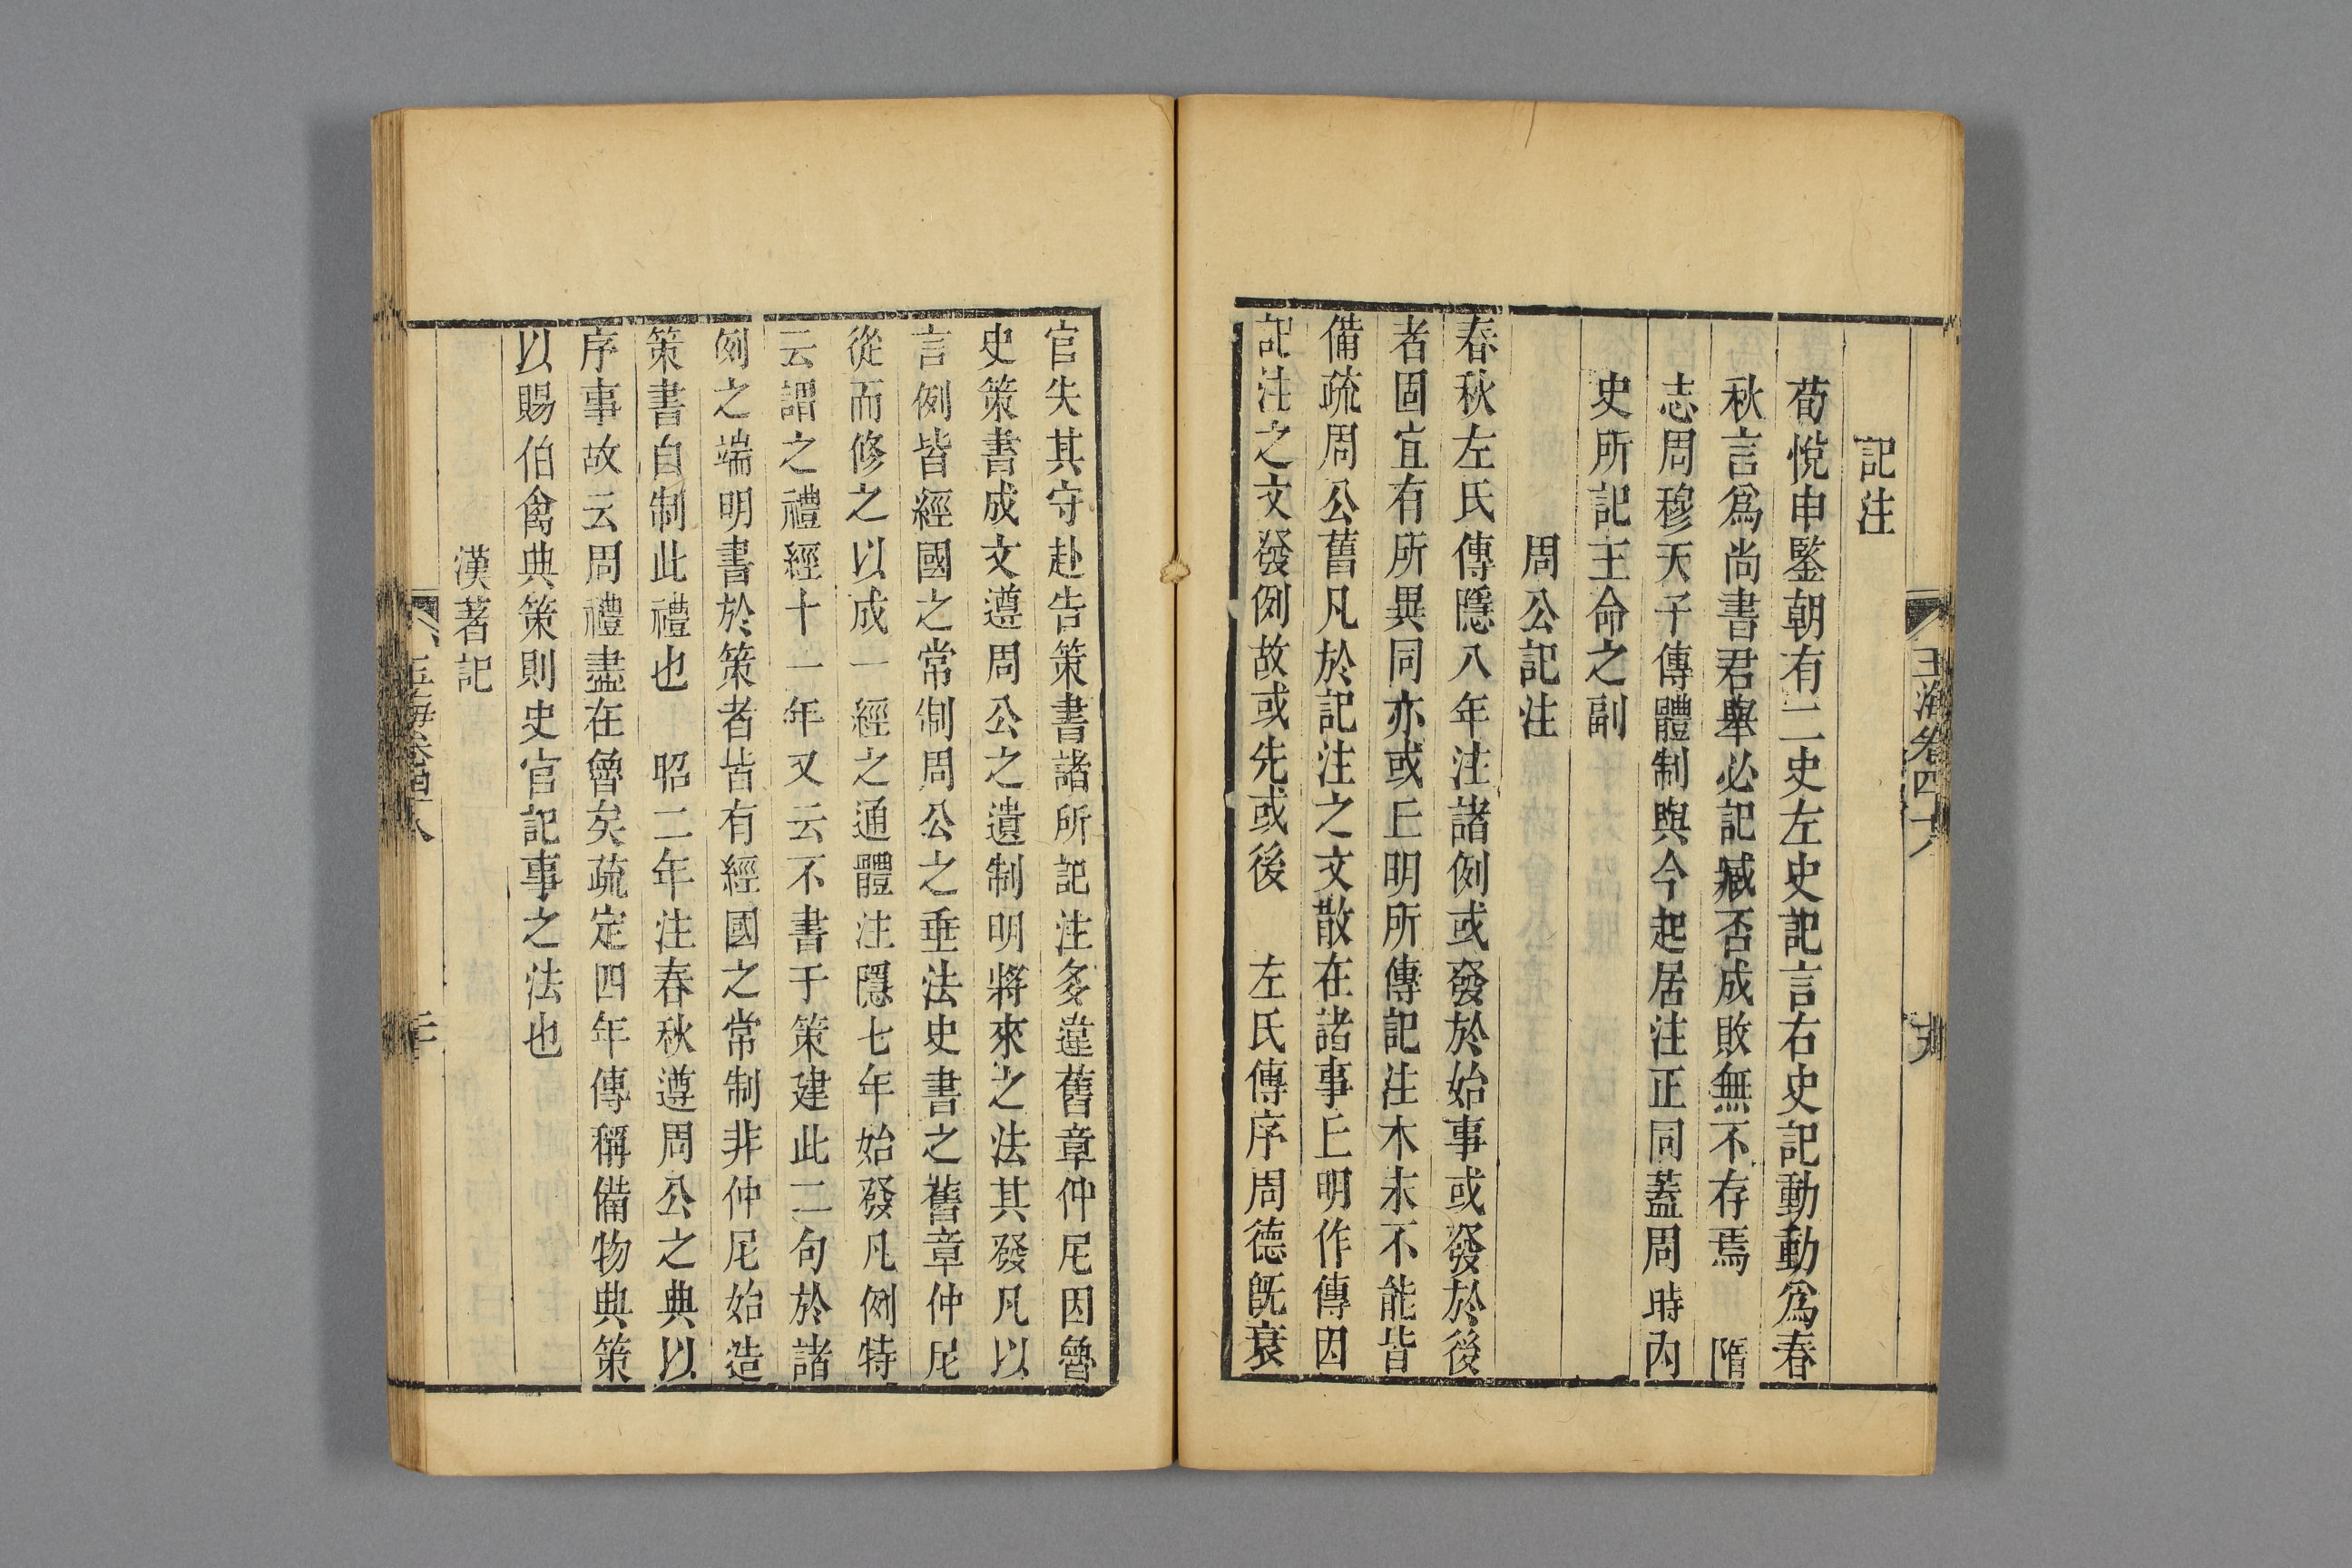 玉海卷四十八
記注
荀悅申鑒朝有二史左史記言右史記動動爲春
秋言爲尚書君舉必記臧否成敗無不存焉　隋
志周穆天子傳體制與今起居注正同蓋周時內
史所記王命之副
周公記注
春秋左氏傳隱八年注諸例或發於始事或發於後
者固宜有所異同亦或丘明所傳記注本末不能皆
備疏周公舊凡於記注之文散在諸事丘明作傳因
記注之文發例故或先或後　左氏傳序周德旣衰
官失其守赴告策書諸所記注多違舊章仲尼因魯
史策書成文遵周公之遺制明將來之法其發凡以
言例皆經國之常制周公之垂法史書之舊章仲尼
從而修之以成一經之通體注隱七年始發凡例特
云謂之禮經十一年又云不書于策建此二句於諸
例之端明書於策者皆有經國之常制非仲尼始造
策書自制此禮也　昭二年注春秋遵周公之典以
序事故云周禮盡在魯矣疏定四年傳稱備物典策
以賜伯禽典策則史官記事之法也
漢著記
玉海卷四十八